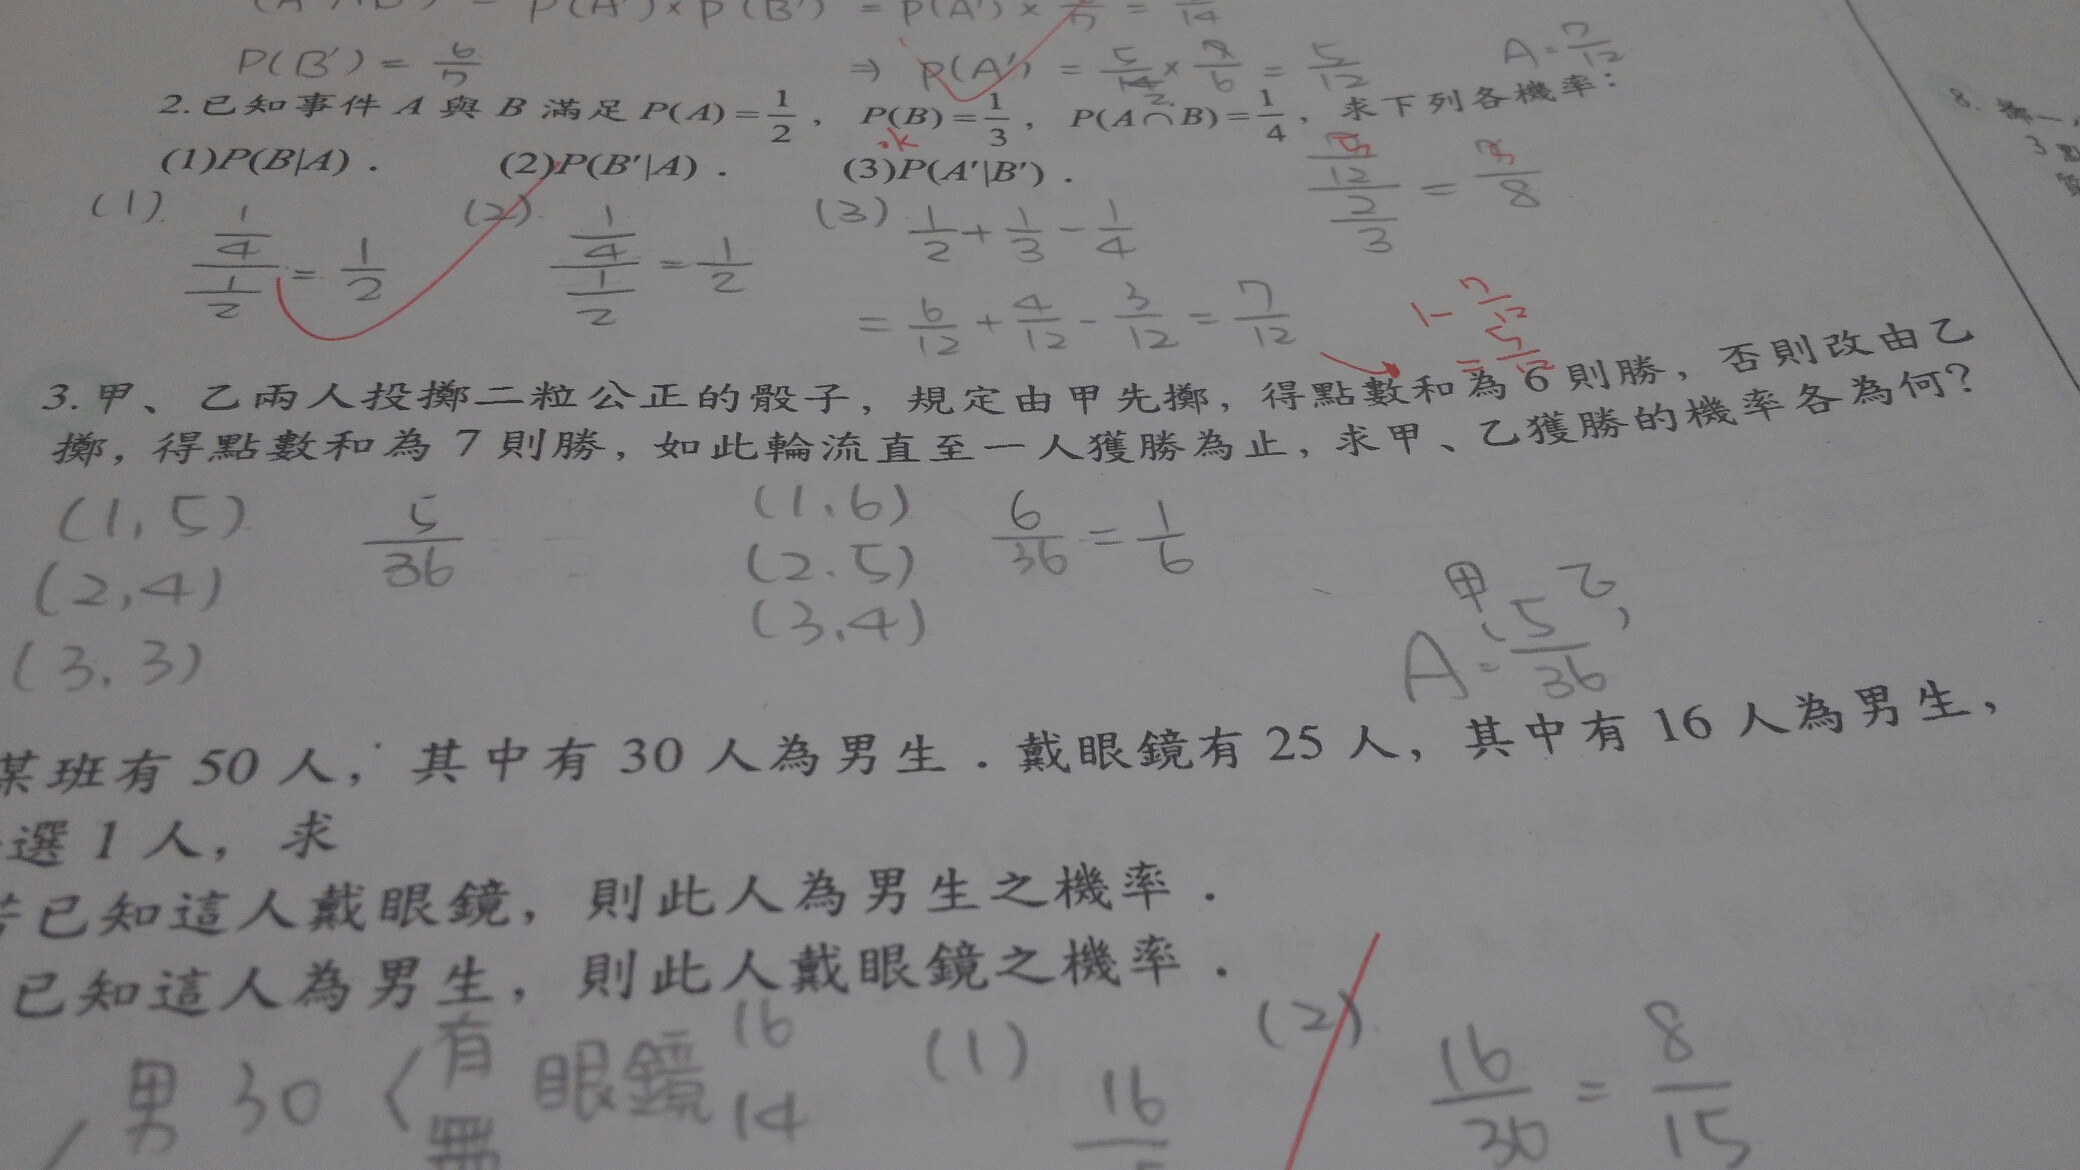 P(A')×P(B') = P(A')× = /14
P(B') = 6/7 ⇒ P(A') = 5/14 × 7/6 = 5/12 A=7/12
2
2.已知事件 A 與 B 滿足 P(A)=1/2, P(B)=1/3, P(A∩B)=1/4, 求下列各機率:
ok
(1)P(B|A). (2)P(B'|A). (3)P(A'|B').
(1) (1/4)/(1/2) = 1/2 (2) (1/4)/(1/2) = 1/2 (3) 1/2 + 1/3 − 1/4
(5/12)/(2/3) = 5/8
= 6/12 + 4/12 − 3/12 = 7/12
1− 7/12
= 5/12
3.甲、乙兩人投擲二粒公正的骰子, 規定由甲先擲, 得點數和為 6 則勝, 否則改由乙
擲, 得點數和為 7 則勝, 如此輪流直至一人獲勝為止, 求甲、乙獲勝的機率各為何?
(1,5) 5/36 (1.6) 6/36 = 1/6
(2,4) (2.5)
(3.3) (3.4)
甲 乙
A=(5/36,
某班有 50 人, 其中有 30 人為男生. 戴眼鏡有 25 人, 其中有 16 人為男生,
選 1 人, 求
已知這人戴眼鏡, 則此人為男生之機率.
已知這人為男生, 則此人戴眼鏡之機率.
男 30 〈 有 眼鏡 16
無 14
(1) 16 (2) 16/30 = 8/15
8.擲一,
3